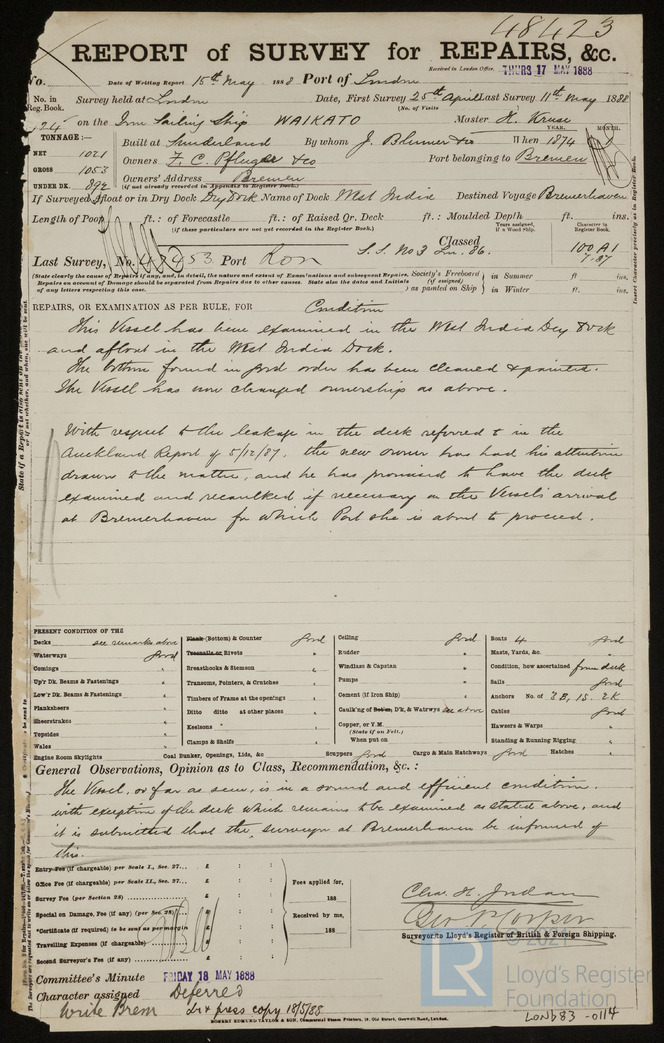 48423
REPORT of SURVEY for REPAIRS, &c.
Received in London Office, THURS 17 MAY 1888
No. Date of Writing Report 15th May 1888 Port of London
No. in Reg. Book. Survey held at London Date, First Survey 25th April Last Survey 11th May 1888
(No. of Visits
24 on the Iron Sailing Ship WAIKATO Master H. Kruse
TONNAGE:— YEAR. MONTH.
Built at Sunderland By whom J. Blumer & Co When 1874
NET 1021
GROSS 1053 Owners F. C. Pfluger & Co Port belonging to Bremen
UNDER DK. 892 Owners' Address Bremen
(if not already recorded in Appendix to Register Book.)
If Surveyed Afloat or in Dry Dock Dry Dock Name of Dock West India Destined Voyage Bremerhaven
Length of Poop ft.: of Forecastle ft.: of Raised Qr. Deck ft.: Moulded Depth ft. ins.
(if these particulars are not yet recorded in the Register Book.)
Years assigned, if a Wood Ship. Character in Register Book.
Last Survey, No. 47453 Port Lon S.S. No 3 Lon. 86. Classed 100 A1
7.87
(State clearly the cause of Repairs if any, and, in detail, the nature and extent of Examinations and subsequent Repairs.
Repairs on account of Damage should be separated from Repairs due to other causes. State also the dates and Initials
of any letters respecting this case.
Society's Freeboard (if assigned) as painted on Ship in Summer ft. ins.
in Winter ft. ins.
REPAIRS, OR EXAMINATION AS PER RULE, FOR Condition
This Vessel has been examined in the West India Dry Dock
and afloat in the West India Dock.
The bottom found in good order has been cleaned & painted.
The Vessel has now changed ownership as above.
With respect to the leakage in the deck referred to in the
Auckland Report of 5/12/87. the new owner has had his attention
drawn to the matter, and he has promised to have the deck
examined and recaulked if necessary on the Vessel's arrival
at Bremerhaven for which Port she is about to proceed.
PRESENT CONDITION OF THE
Decks see remarks above
Waterways good
Comings "
Up'r Dk. Beams & Fastenings "
Low'r Dk. Beams & Fastenings "
Planksheers
Sheerstrakes "
Topsides "
Wales "
Engine Room Skylights
Plank (Bottom) & Counter good
Treenails or Rivets "
Breasthooks & Stemson "
Transoms, Pointers, & Crutches "
Timbers of Frame at the openings "
Ditto ditto at other places "
Keelsons "
Clamps & Shelfs "
Coal Bunker, Openings, Lids, &c
Ceiling good
Rudder "
Windlass & Capstan "
Pumps "
Cement (if Iron Ship) "
Caulk'ng of Bottom, D'k, & Watrwys see above
Copper, or Y.M.
(State if on Felt.)
When put on
Scuppers good
Cargo & Main Hatchways good Hatches "
Boats 4 good
Masts, Yards, &c. "
Condition, how ascertained from deck
Sails good
Anchors No. of 3B, 1S. 2K
Cables good
Hawsers & Warps "
Standing & Running Rigging "
General Observations, Opinion as to Class, Recommendation, &c.:
The Vessel, so far as seen, is in a sound and efficient condition.
with exception of the deck which remains to be examined as stated above, and
it is submitted that the surveyor at Bremerhaven be informed of
this.
Entry Fee (if chargeable) per Scale I., Sec. 27... £ : :
Office Fee (if chargeable) per Scale II., Sec. 27... £ : :
Survey Fee (per Section 28) £ : :
Special on Damage, Fee (if any) (per Sec. 28) £ : :
*Certificate (if required) to be sent as per margin £ : :
Travelling Expenses (if chargeable) £ : :
Second Surveyor's Fee (if any) £ : :
Fees applied for,
188
Received by me,
188
Chas. H. Jordan
Surveyor to Lloyd's Register of British & Foreign Shipping.
Committee's Minute FRIDAY 18 MAY 1888
Character assigned Deferred
Write Brem Lr & press copy 18/5/88
ROBERT EDMUND TAYLOR & SON, Commercial Steam Printers, 19, Old Street, Goswell Road, London.
© 2021
LR
Lloyd's Register
Foundation
LON683-0114